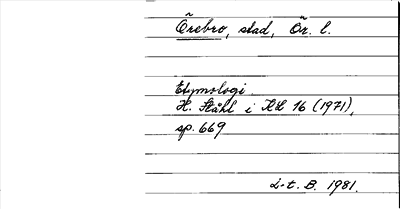 Örebro, stad, Ör. l.
Etymologi
H. Ståhl i KL 16 (1971),
sp. 669
L-t. B. 1981.